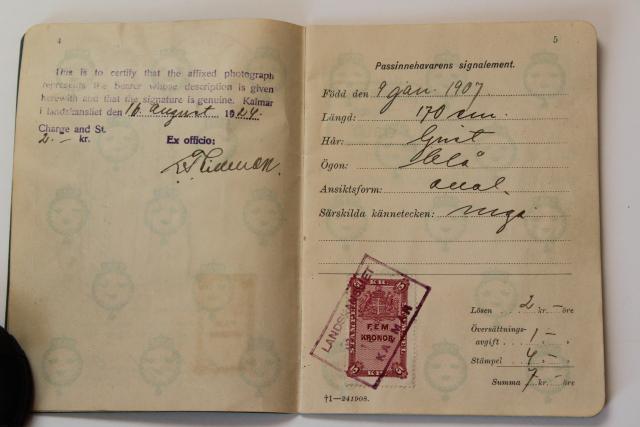 4
This is to certify that the affixed photograph
represents the bearer whose description is given
herewith and that the signature is genuine. Kalmar
i landskansliet den 16 augusti 1924.
Charge and St.
2.– kr.
Ex officio:
5
Passinnehavarens signalement.
Född den 9 jan. 1907
Längd: 170 cm.
Hår: ljust
Ögon: blå
Ansiktsform: oval
Särskilda kännetecken: inga
LANDSKANSLIET
KALMAR
5 KR 5
STÄMPEL
FEM
KRONOR
5 KR 5
Lösen 2 kr. – öre
Översättnings-
avgift 1 –
Stämpel 4 –
Summa 7 kr. – öre
†1—241908.